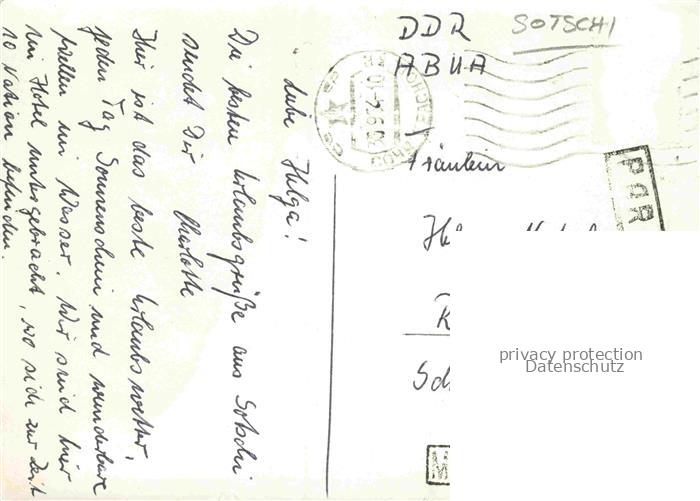 Liebe Helga!
Die besten Urlaubsgrüße aus Sotschi
sendet Dir Charlotte
Hier ist das beste Urlaubswetter,
jeden Tag Sonnenschein und wunderbare
Wellen im Wasser. Wir sind hier
im Hotel untergebracht, wo sich zur Zeit
10 Nation befinden.
SOTSCHI
DDR
АВИА
Fräulein
PAR
privacy protection
Datenschutz